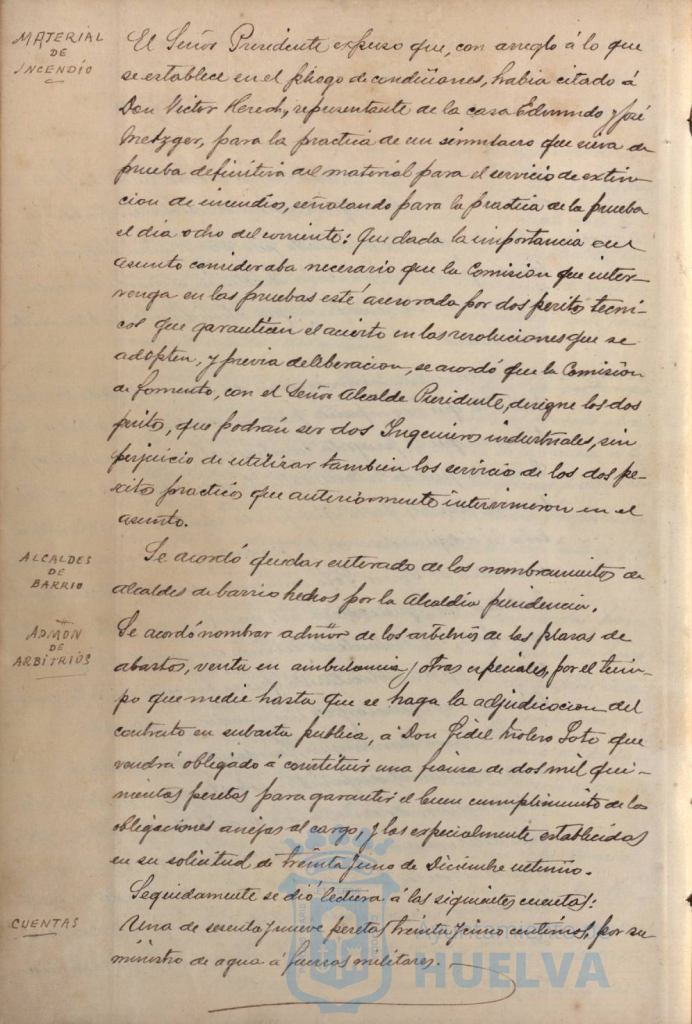 MATERIAL
DE
INCENDIO
El Señor Presidente expuso que, con arreglo á lo que
se establece en el pliego de condiciones, habia citado á
Don Victor representante de la casa Edmundo y José
Metzger, para la practica de un simulacro que sirva de
prueba definitiva del material para el servicio de extin-
cion de incendios, señalando para la practica de la prueba
el dia ocho del corriente: Que dada la importancia del
asunto consideraba necesario que la Comision que inter-
venga en las pruebas esté asesorada por dos peritos tecni-
cos que garanticen el acierto en las resoluciones que se
adopten, y previa deliberacion, se acordó que la Comision
de fomento, con el Señor Alcalde Presidente, designe los dos
peritos, que podrán ser dos Ingenieros industriales, sin
perjuicio de utilizar tambien los servicios de los dos pe-
ritos practicos que anteriormente intervinieron en el
asunto.
ALCALDES
DE
BARRIO
Se acordó quedar enterado de los nombramientos de
alcaldes de barrio hechos por la Alcaldia presidencia.
ADMÓN
DE
ARBITRIOS
Se acordó nombrar admor de los arbitrios de las plazas de
abastos, venta en ambulancia y otras especiales, por el tiem-
po que medie hasta que se haga la adjudicacion del
contrato en subasta publica, á Don Fidel Molero Soto que
vendrá obligado á constituir una fianza de dos mil qui-
nientas pesetas para garantir el buen cumplimiento de las
obligaciones anejas al cargo, y las especialmente establecidas
en su solicitud de treinta y uno de Diciembre ultimo.
Seguidamente se dió lectura á las siguientes cuentas:
CUENTAS
Una de sesenta y nueve pesetas treinta y cinco centimos, por su-
ministro de agua á fuerzas militares.
HUELVA